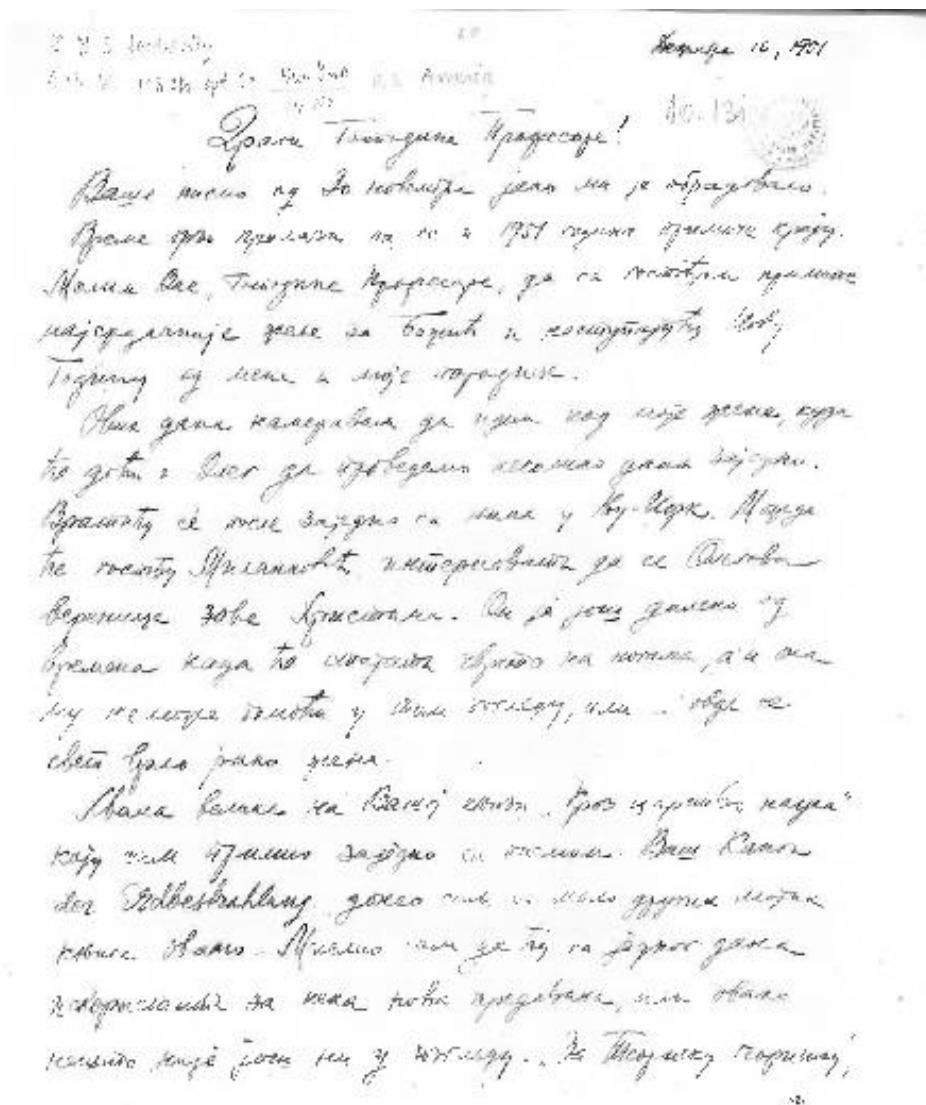 10.131
Драги Господине Професоре!
Ваше писмо од 30 новембра јако ми је обрадовало.
Време брзо пролази па се и 1951 година примиче крају.
Молим Вас, Господине Професоре, да са госпођом примите
најсрдачније жеље за Божић и наступајућу Нову
Годину од мене и моје породице.
Ових дана намеравам да идем код моје жене, куда
ће доћи и Олег да проведемо неколико дана заједно.
Вратићу се после заједно са њима у Њу-Иорк. Можда
ће госпођу Миланковић интересовати да се Олегова
вереница зове Христина. Он је још далеко од
времена када ће стојати чврсто на ногама, а и она
му не може помоћи у том погледу, или овде се
свет врло рано жени.
Хвала велика на Вашој књизи „Кроз царство наука"
коју сам примио заједно са писмом. Ваш Canon
der Erdbestrahlung донео сам са мало других мојих
књига овамо. Мислио сам да ћу га једног дана
искористити за нека нова предавања, или овако
нешто није још ни у изгледу. За Техничку